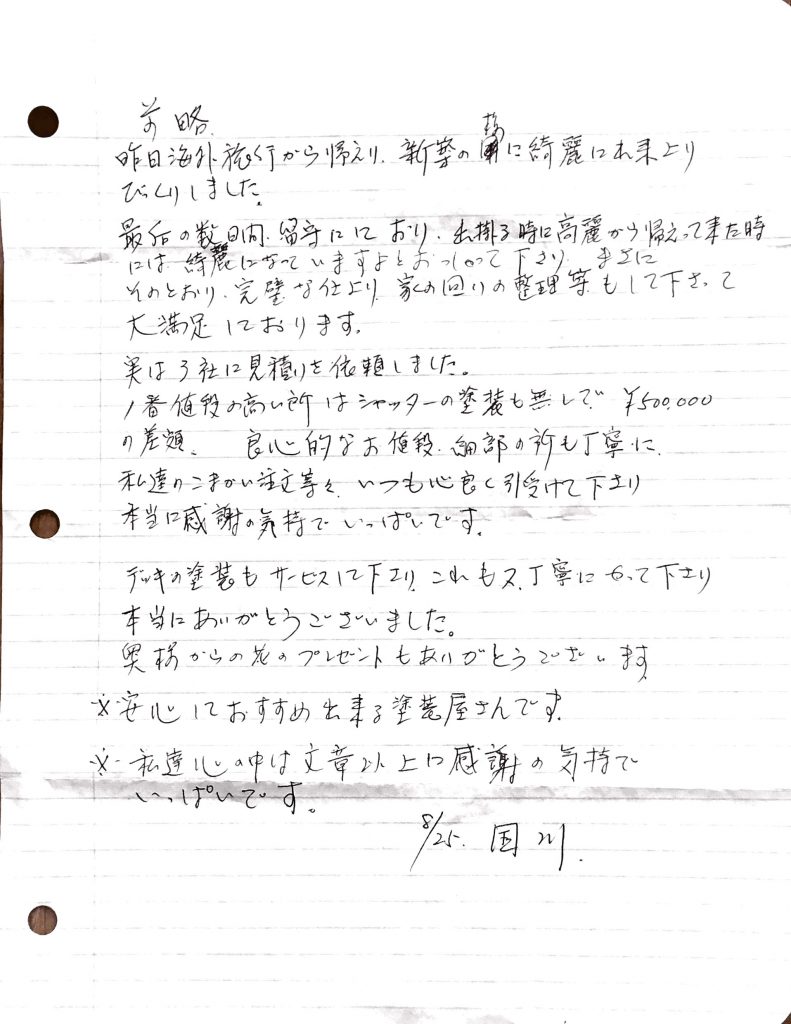 前略
昨日海外旅行から帰えり、新築の様に綺麗に出来上り
びっくりしました。
最后の数日間、留守にしており、出掛る時に高麗から帰えって来た時
には綺麗になっていますよとおっしゃって下さり、まさに
そのとおり、完璧な仕上り、家の回りの整理等もして下さって
大満足しております。
実は3社に見積りを依頼しました。
1番値段の高い所はシャッターの塗装も無しで ¥500,000
の差額、 良心的なお値段、細部の所も丁寧に、
私達のこまかい注文等々、いつも心良く引受けて下さり
本当に感謝の気持でいっぱいです。
デッキの塗装もサービスして下さり、これも又、丁寧にやって下さり
本当にありがとうございました。
奥様からの花のプレゼントもありがとうございます
※安心しておすすめ出来る塗装屋さんです。
※私達心の中は文章以上に感謝の気持で
いっぱいです。
8/25. 国川.